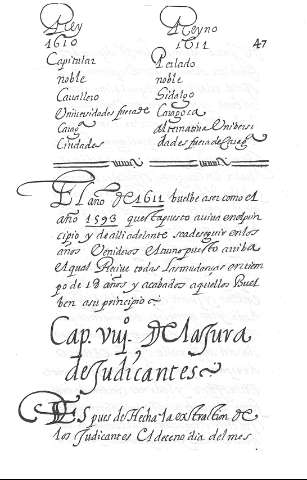 Rey Reyno
1610 1611 47
Capitular Perlado
noble noble
Cavallero Hidalgo
Universidades fuera de Caragoça
Carag̃ Alternativa Universi
Ciudades dades fuera de Carag̃
El año de 1611 buelbe a ser como el
año 1593 questa puesto arriva en el prin
cipio y de alli adelante se a de seguir en los
años Venideros el turno puesto arriba
el qual Recive todas las mudanzas en tiem
po de 18 años y acabados aquellos Buel
ben a su principio
Cap. viij. De la Jura
de Judicantes
Despues de Hecha la extraction de
los Judicantes El deceno dia del mes